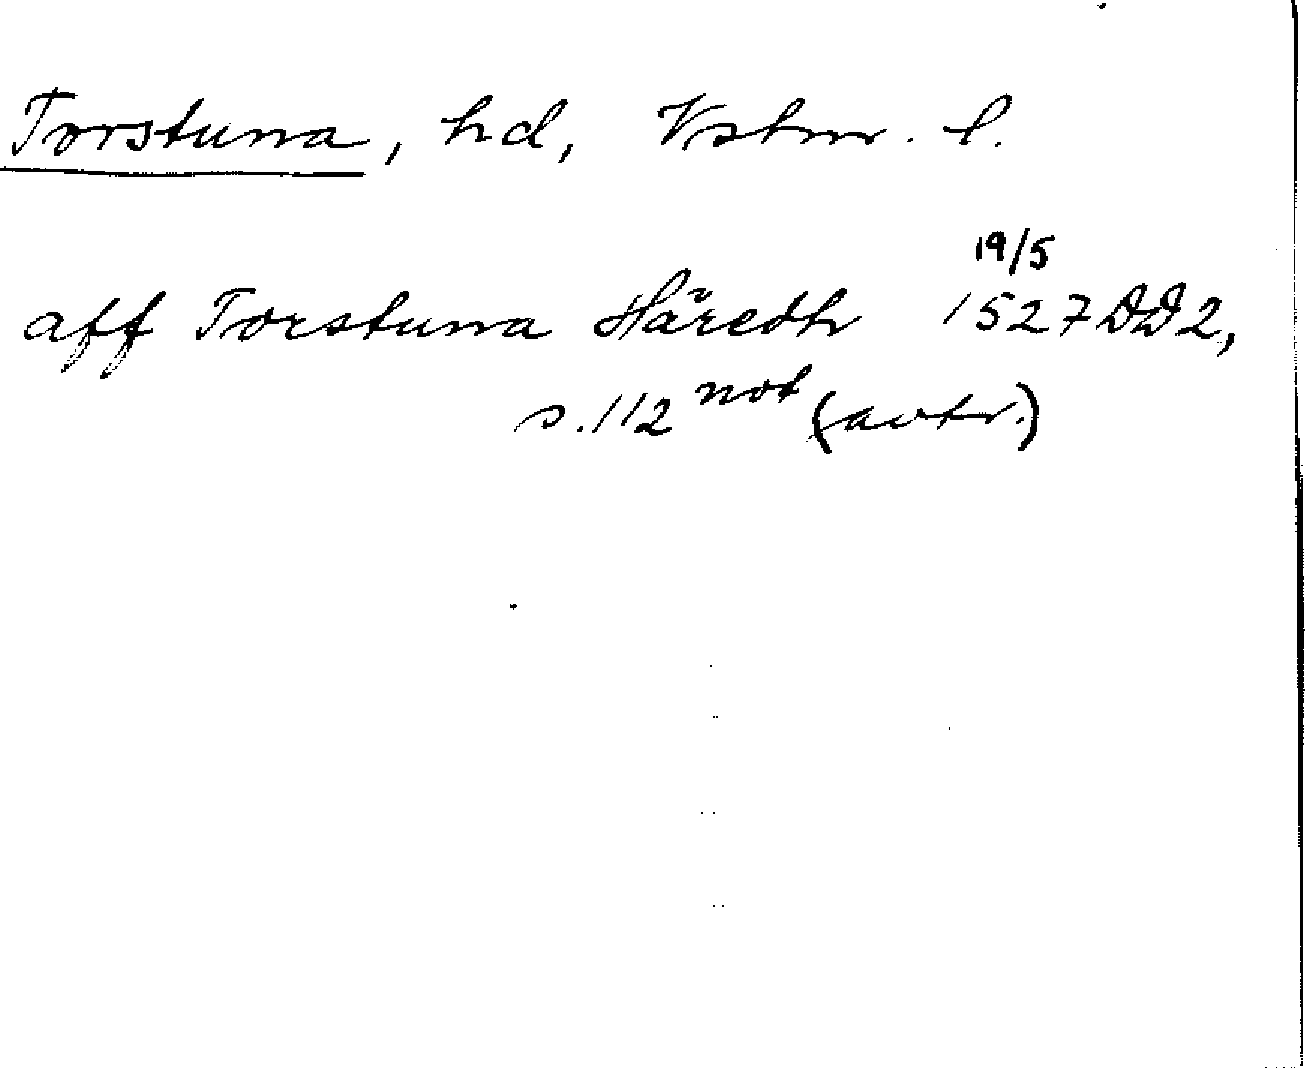 Torstuna, hd, Vstm. l.
19/5
aff Torstuna Häredh 1527 DD2,
s. 112 not (avtr.)